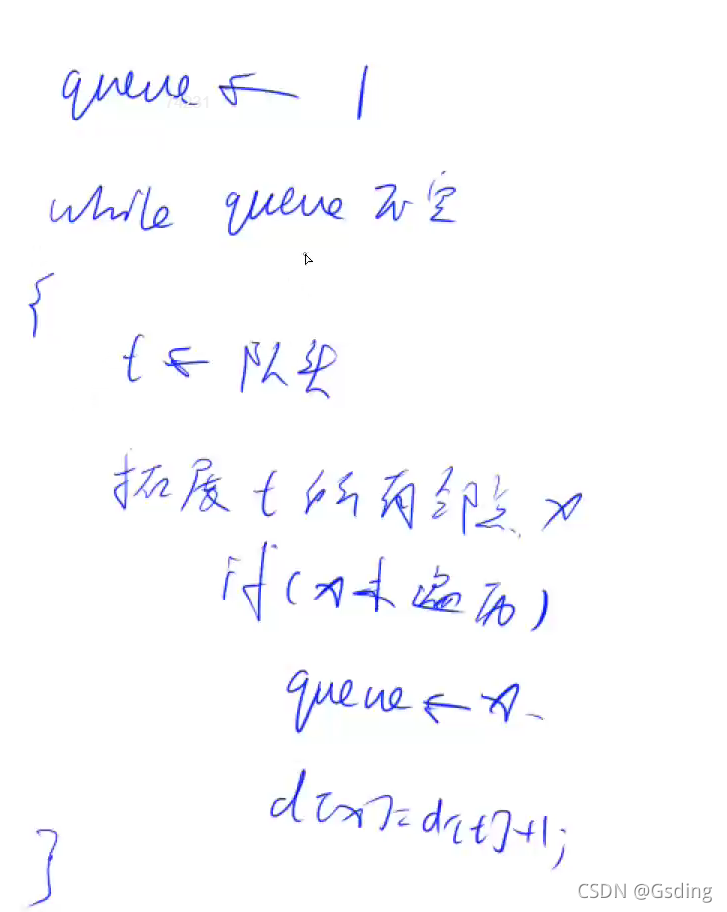 queue ← 1
while queue 不空
{
t ← 队头
拓展 t 所有邻点 x
if (x未遍历)
queue ← x
d[x]=d[t]+1;
}
CSDN @Gsding